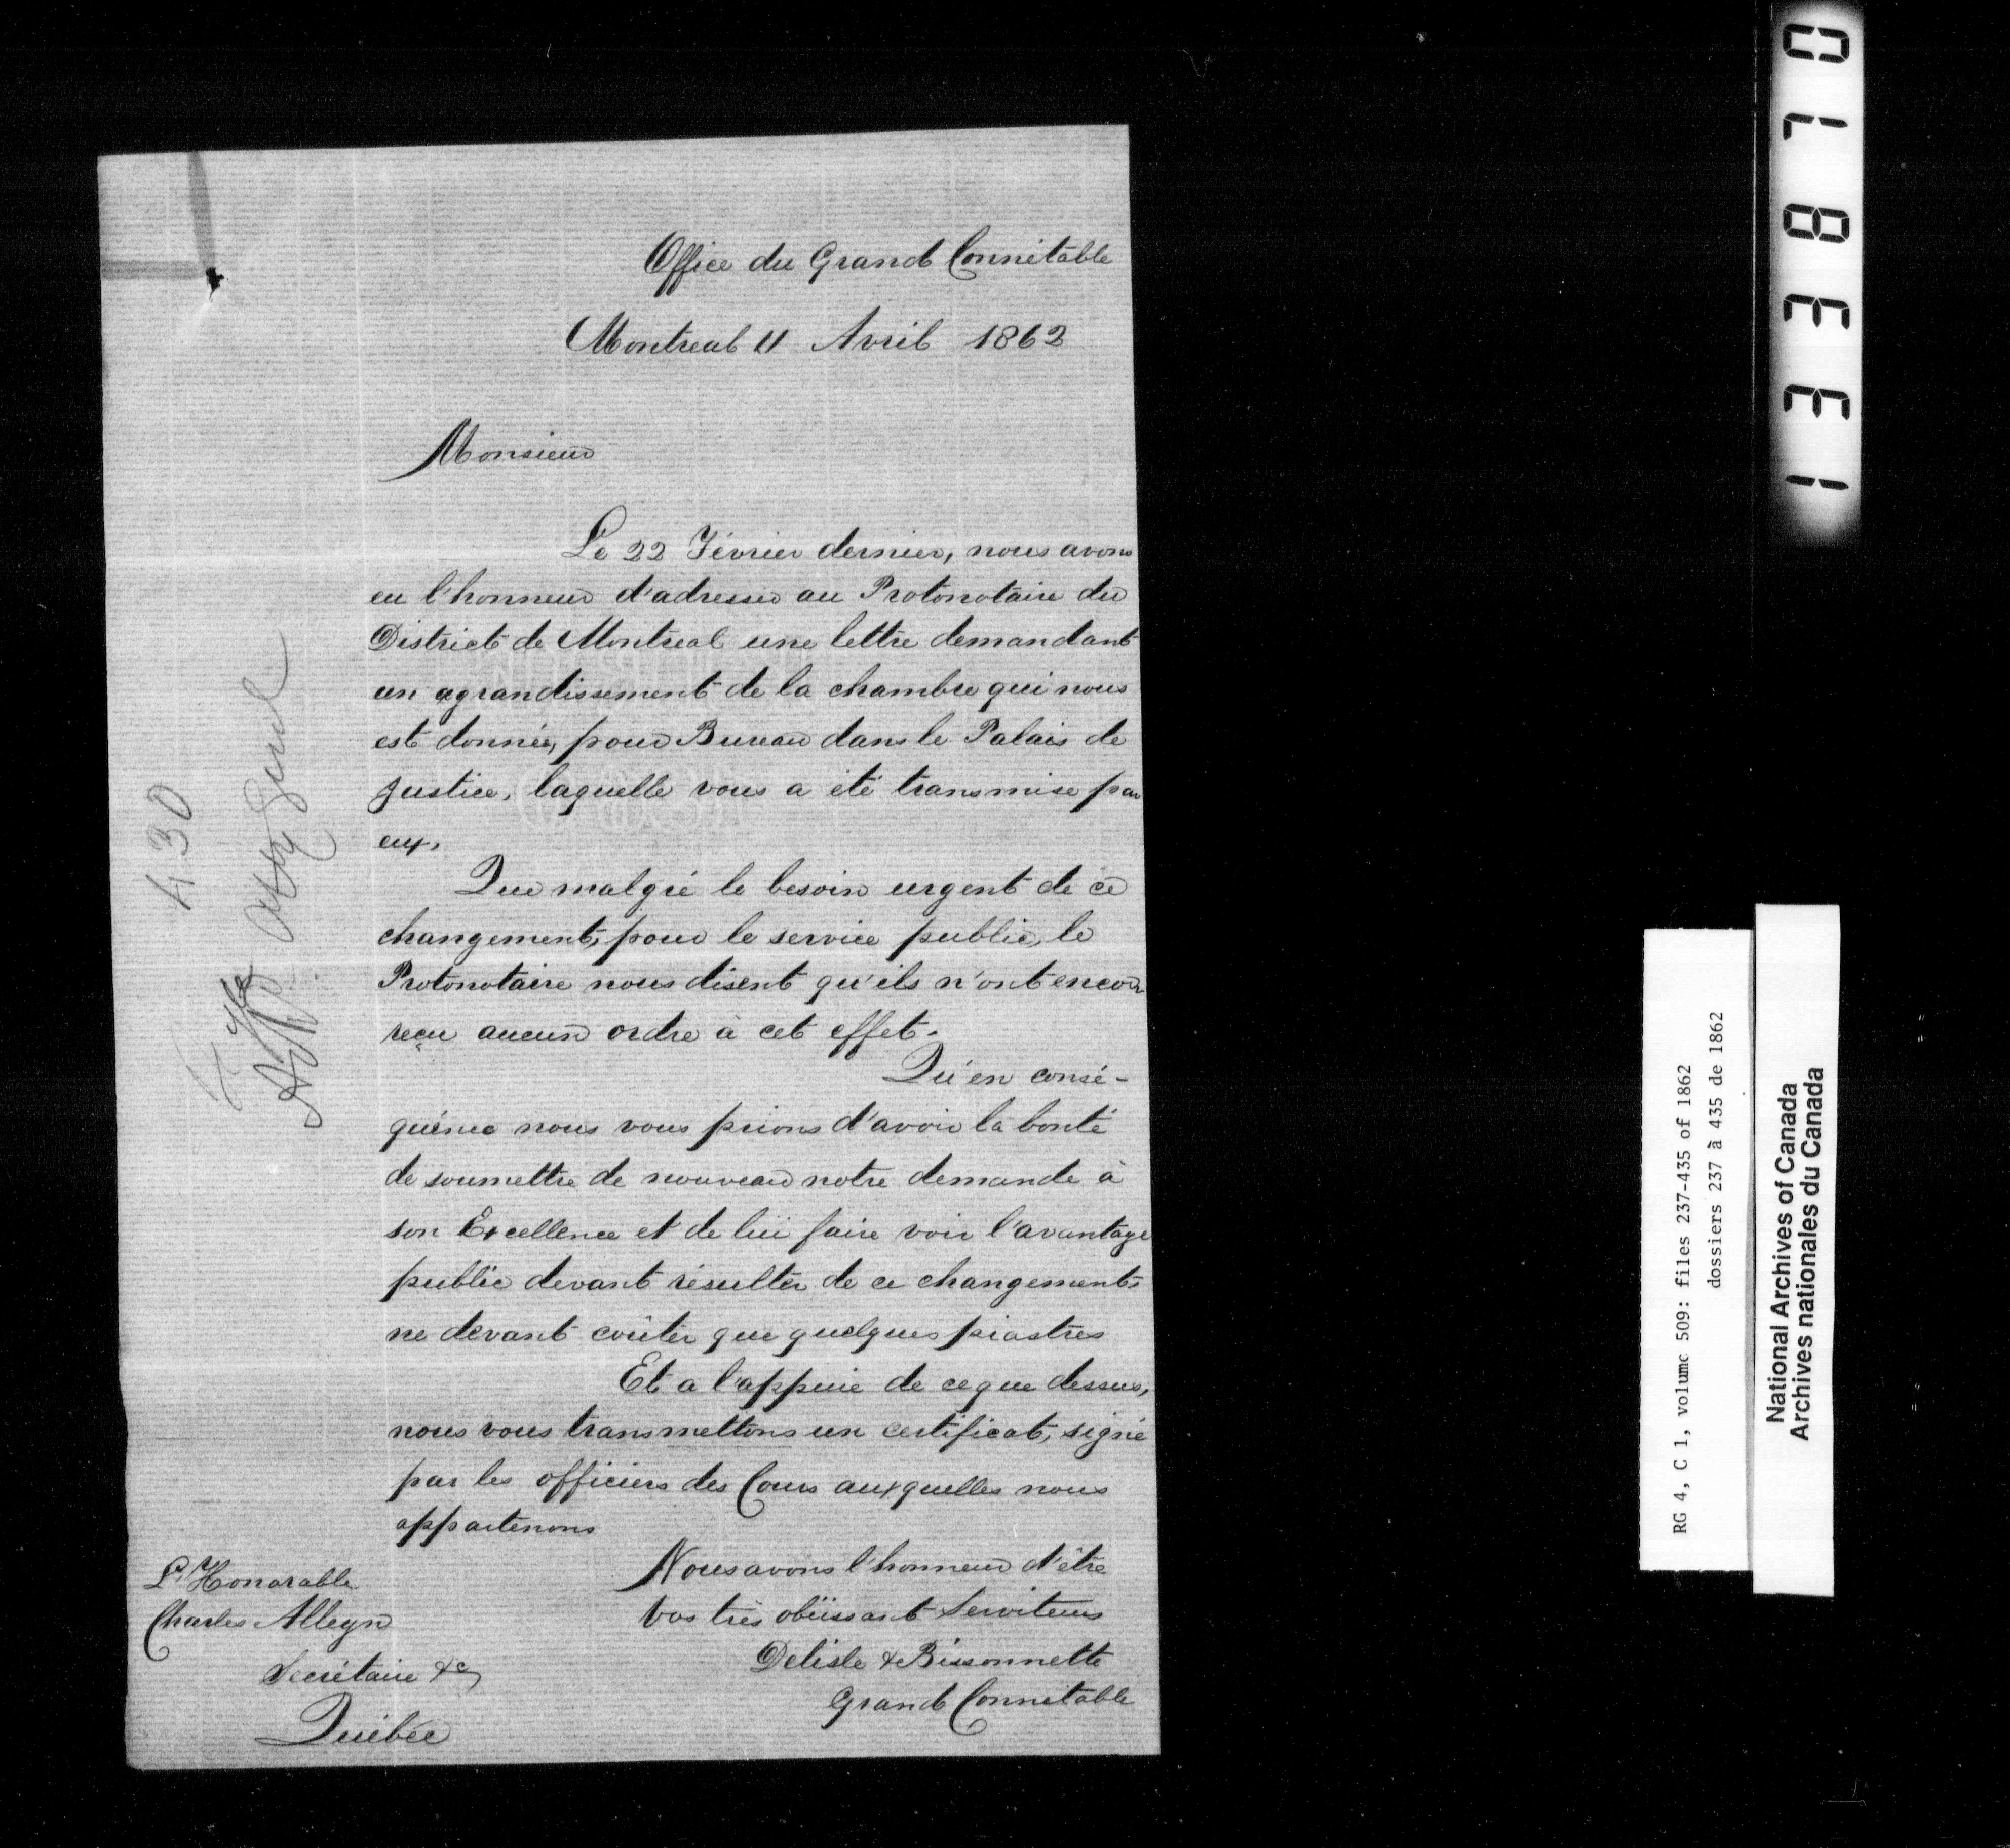 Office du Grand Connétable
Montreal 11 Avril 1862
Monsieur
Le 22 Février dernier, nous avons
eu l'honneur d'adresser au Protonotaire du
District de Montreal une lettre demandant
un agrandissement de la chambre qui nous
est donnée, pour Bureau dans le Palais de
Justice, laquelle vous a été transmise par
eux,
Que malgré le besoin urgent de ce
changement, pour le service public, le
Protonotaire nous disent qu'ils n'ont encor
reçu aucun ordre à cet effet.
Qu'en consé-
quence nous vous prions d'avoir la bonté
de soumettre de nouveau notre demande à
son Excellence et de lui faire voir l'avantage
public devant résulter de ce changement,
ne devant coûter que quelques piastres
Et a l'appuie de ce que dessus,
nous vous transmettons un certificat, signé
par les officiers des Cours auxquelles nous
appartenons
Nous avons l'honneur d'être
Vos très obéissant Serviteurs
Delisle & Bissonnette
Grand Connétable
L'Honorable
Charles Alleyn
Secrétaire &c
Québec
430
Atty Genl
RG 4, C 1, volume 509: files 237-435 of 1862
dossiers 237 à 435 de 1862
National Archives of Canada
Archives nationales du Canada
133870